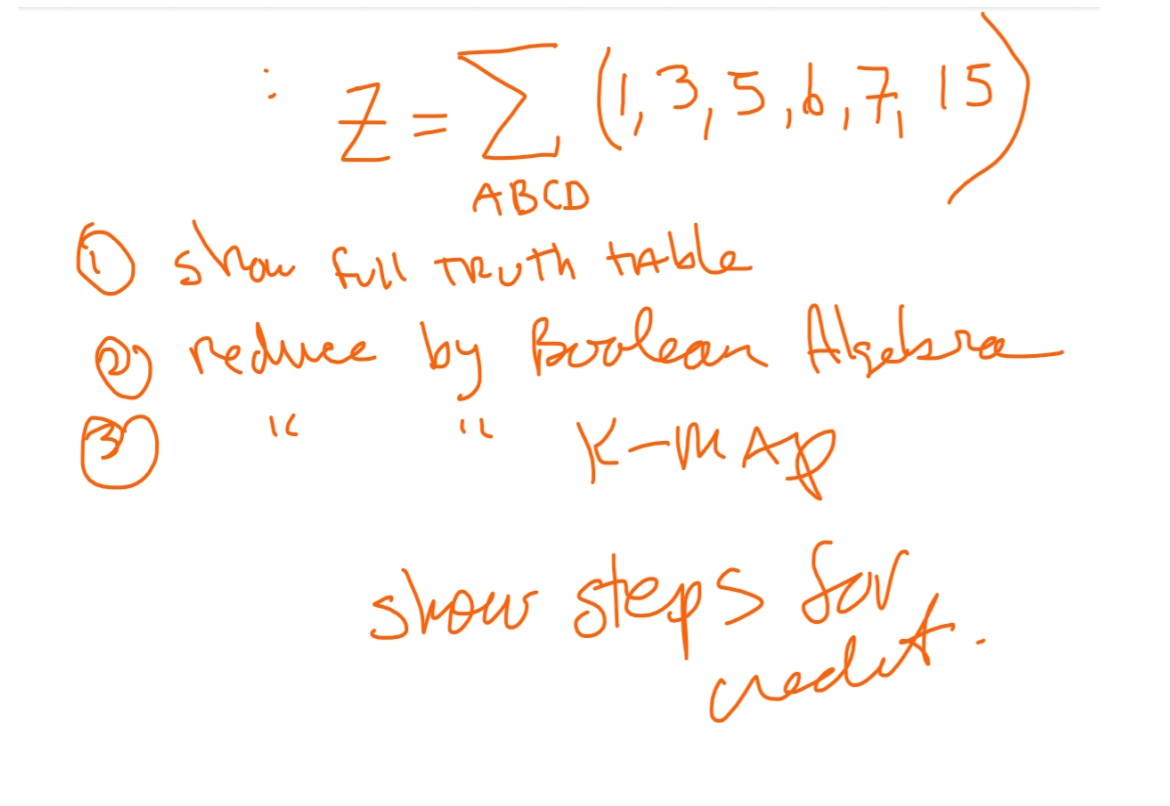 : Z = ∑ (1, 3, 5, 6, 7, 15)
ABCD
① show full TRUTH tAble
② reduce by Boolean Algebra
③ " " K-MAp
show steps for
credit.